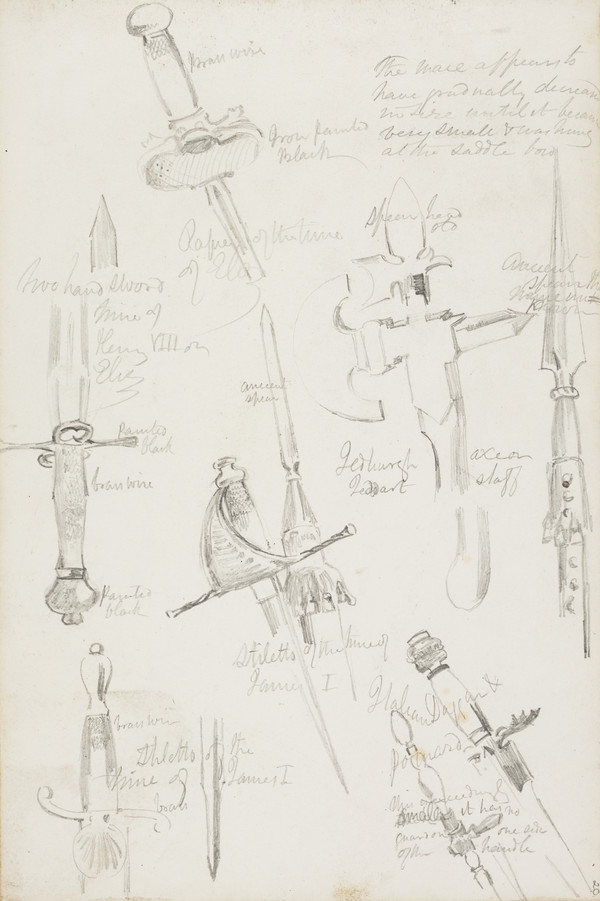 Brass wire
The mace appears to
have gradually decreased
in size until it became
very small & was hung
at the saddle bow
Iron painted
Black
Rapier of the time
of Eliz
Spear head
Two hand sword
time of
Henry VIII or
Eliz
Ancient
spear
ancient
spear
Painted
black
brass wire
Jedburgh
Jeddart
axe or
staff
Painted
black
Stiletto of the time of
James I
Italian Daggar &
Poignard
brass wire
Stiletto of the
time of James I
brass
this
smaller it has no
guard on one side
of the handle